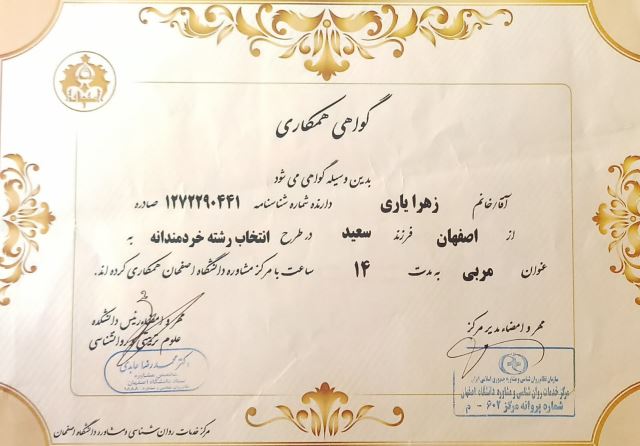 گواهی همکاری
بدین وسیله گواهی می شود
آقا/خانم زهرا یاری دارنده شماره شناسنامه ۱۲۷۲۲۹۰۴۴۱ صادره
از اصفهان فرزند سعید در طرح انتخاب رشته خردمندانه به
عنوان مربی به مدت ۱۴ ساعت با مرکز مشاوره دانشگاه اصفهان همکاری کرده اند.
مهر و امضاء مدیر مرکز
مهر و امضاء رئیس دانشکده
علوم تربیتی و روانشناسی
سازمان نظام روان شناسی و مشاوره جمهوری اسلامی ایران
مرکز خدمات روان شناسی و مشاوره دانشگاه اصفهان
شماره پروانه مرکز ۶۰۲ - م
دکتر محمدرضا عابدی
مرکز خدمات روان شناسی و مشاوره دانشگاه اصفهان